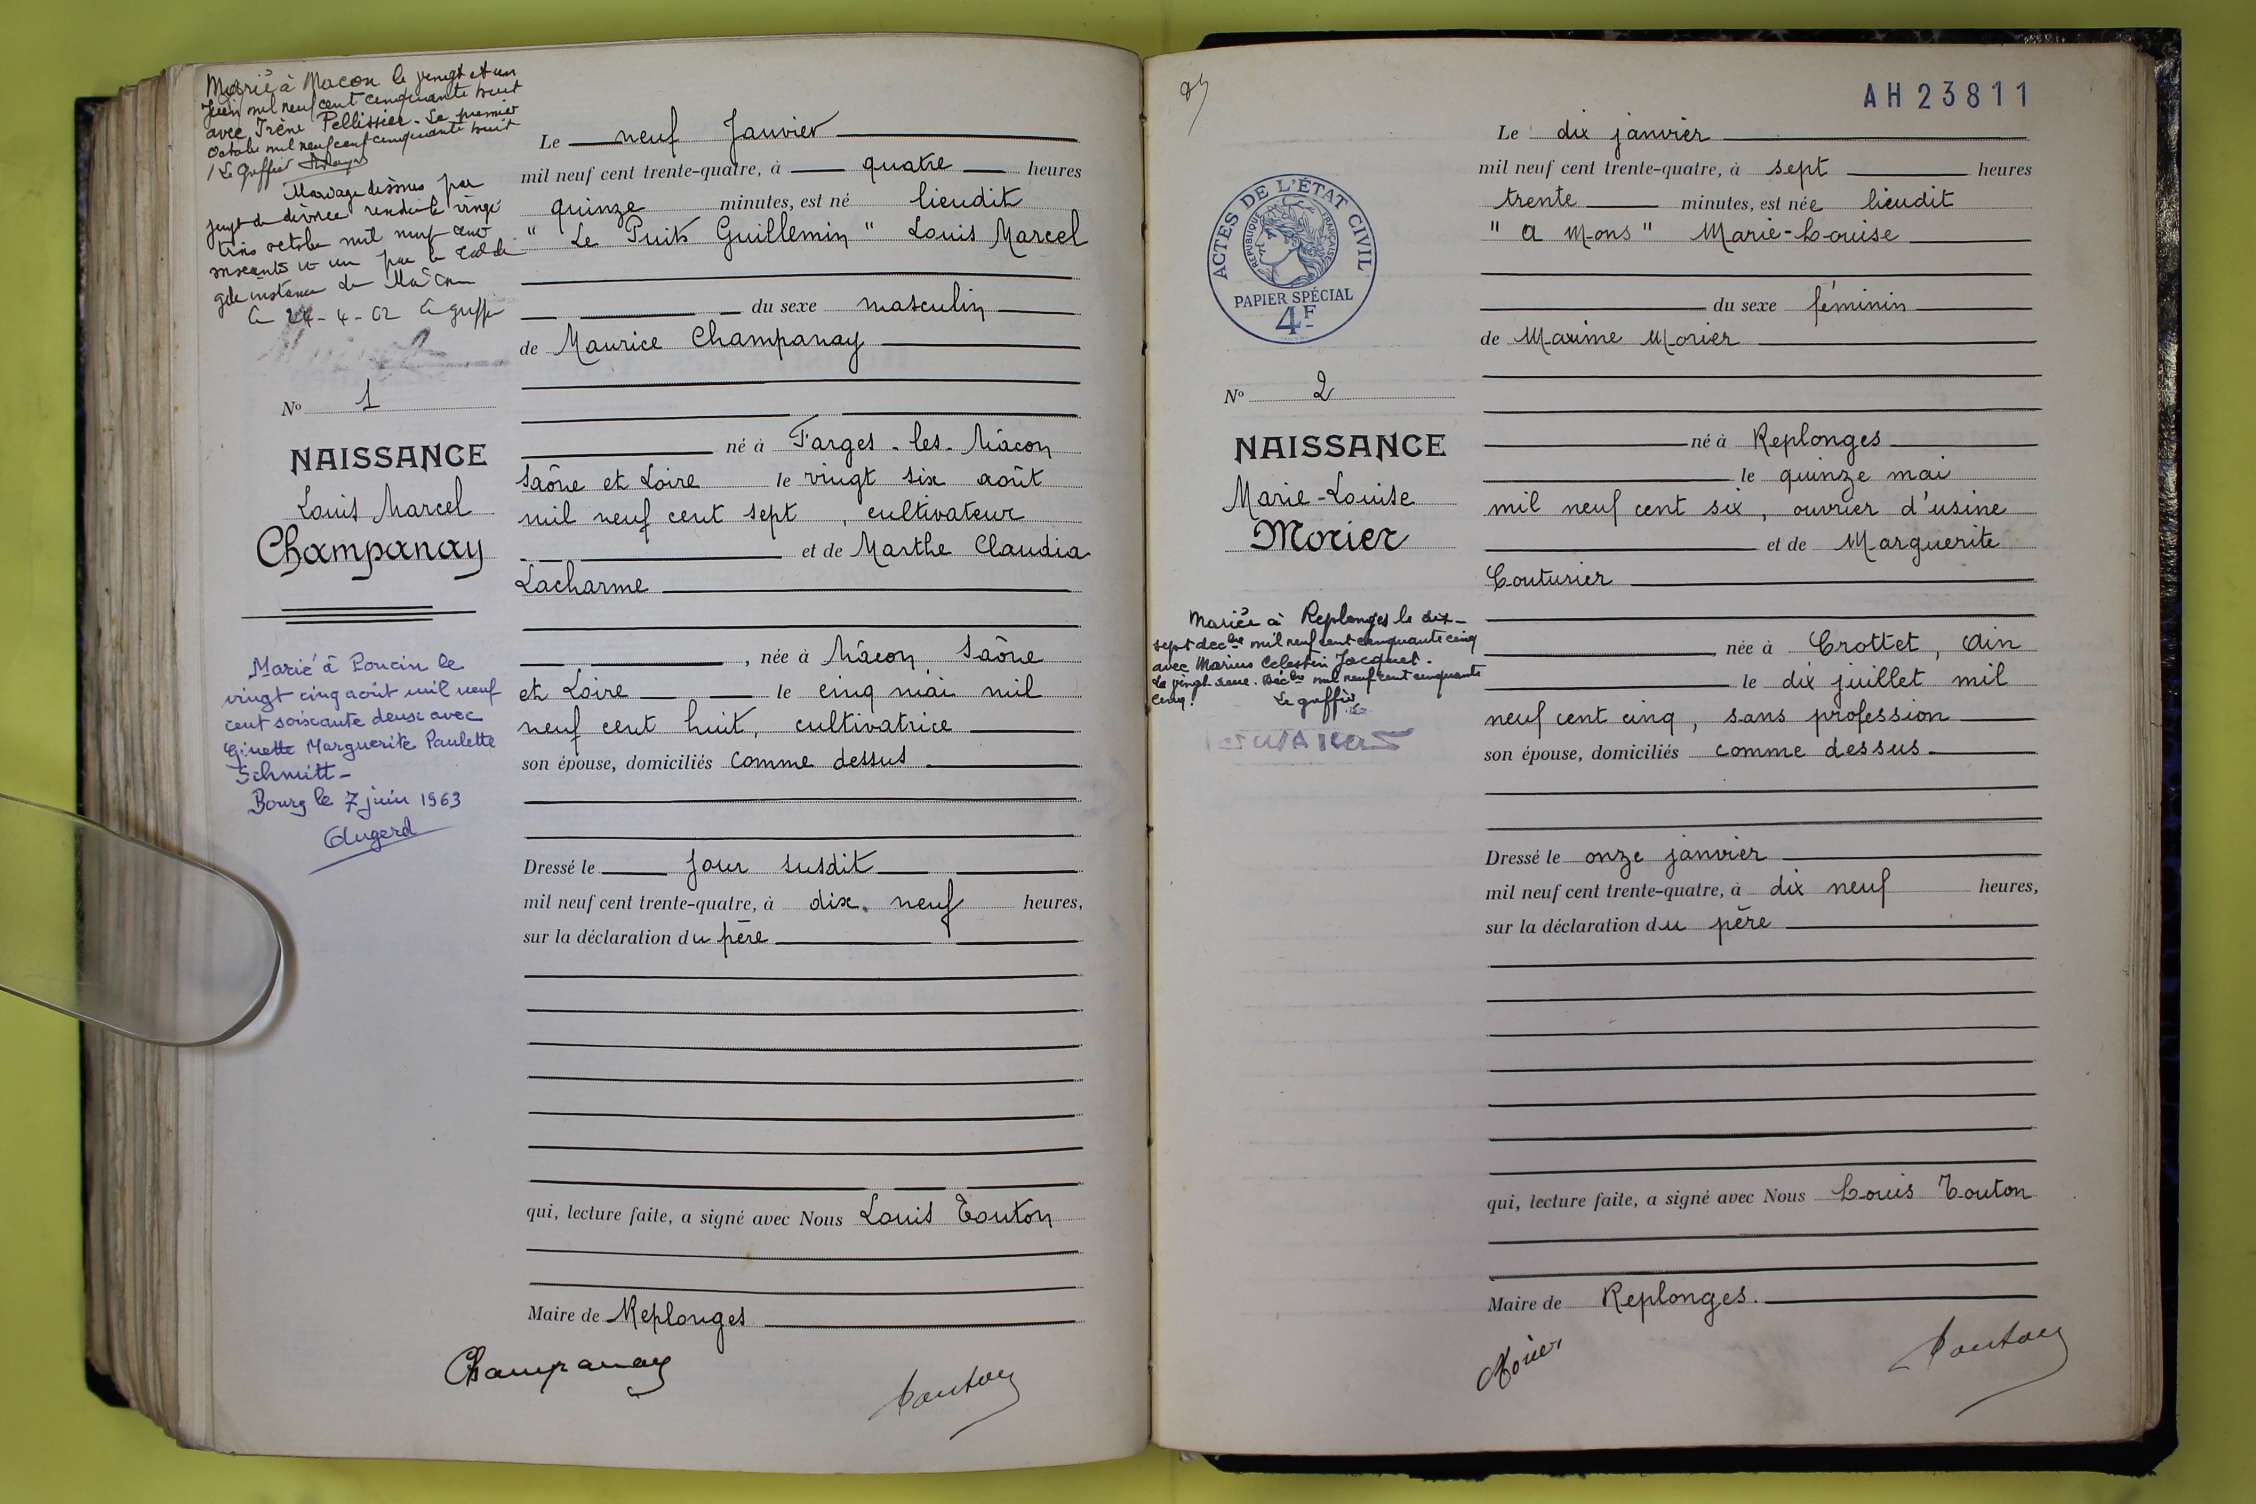 Marié à Macon le vingt et un
Juin mil neuf cent cinquante huit
avec Irène Pellissier. Le premier
Octobre mil neuf cent cinquante huit
Le Greffier
Mariage dissous par
jugt de divorce rendu le vingt
trois octobre mil neuf cent
soixante et un par le Trib de
gde instance de Mâcon
Le 24-4-62 Le greffier
No 1
NAISSANCE
Louis Marcel
Champanay
Marié à Poncin le
vingt cinq août mil neuf
cent soixante deux avec
Ginette Marguerite Paulette
Schmitt -
Bourg le 7 juin 1963
Le neuf Janvier
mil neuf cent trente-quatre, à quatre heures
quinze minutes, est né lieudit
" Le Puits Guillemin " Louis Marcel
du sexe masculin
de Maurice Champanay
né à Farges-les-Mâcon
Saône et Loire le vingt six août
mil neuf cent sept, cultivateur
et de Marthe Claudia
Lacharme
, née à Mâcon, Saône
et Loire le cinq mai mil
neuf cent huit, cultivatrice
son épouse, domiciliés comme dessus
Dressé le jour susdit
mil neuf cent trente-quatre, à dix-neuf heures,
sur la déclaration du père
qui, lecture faite, a signé avec Nous Louis Touton
Maire de Replonges
Champanay
Touton
AH23811
ACTES DE L'ÉTAT CIVIL
RÉPUBLIQUE FRANÇAISE
PAPIER SPÉCIAL
4F
No 2
NAISSANCE
Marie-Louise
Morier
Mariée à Replonges le dix-
sept décbre mil neuf cent cinquante cinq
avec Marius Celestin Jacquet.
Le vingt Décbre mil neuf cent cinquante
cinq. Le greffier
Le dix janvier
mil neuf cent trente-quatre, à sept heures
trente minutes, est née lieudit
" a Mons " Marie-Louise
du sexe féminin
de Maxime Morier
né à Replonges
le quinze mai
mil neuf cent six, ouvrier d'usine
et de Marguerite
Couturier
née à Crottet, Ain
le dix juillet mil
neuf cent cinq, sans profession
son épouse, domiciliés comme dessus
Dressé le onze janvier
mil neuf cent trente-quatre, à dix neuf heures,
sur la déclaration du père
qui, lecture faite, a signé avec Nous Louis Touton
Maire de Replonges.
Morier
Touton